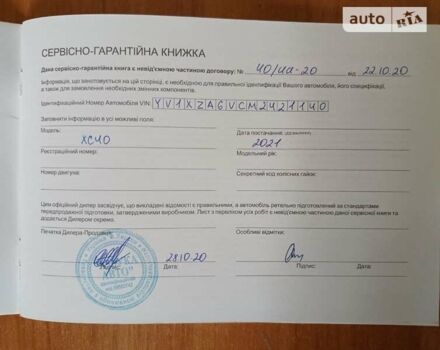 auto RIA
СЕРВІСНО-ГАРАНТІЙНА КНИЖКА
Дана сервісно-гарантійна книга є невід'ємною частиною договору: № 40/ца-20 від 22.10.20
Інформація, що занотовується на цій сторінці, є необхідною для правильної ідентифікації Вашого автомобіля, його специфікації,
а також для замовлення необхідних змінних компонентів.
Ідентифікаційний Номер Автомобіля VIN: YV1XZAGVCM2421140
Заповнити інформацію в усі можливі поля:
Модель: Дата постачання:
XC40 2021
Реєстраційний номер: Модельний рік:
Номер двигуна: Секретний код колісних гайок:
Цим офіційний дилер засвідчує, що викладені відомості є правильними, а автомобіль ретельно підготовлений за стандартами
передпродажної підготовки, затвердженими виробником. Лист з переліком усіх робіт є невід'ємною частиною даної сервісної книги та
додається Дилером окремо.
Печатка Дилера-Продавця: Особливі відмітки:
АВТО"
28.10.20
Дата: Підпис: Дата: